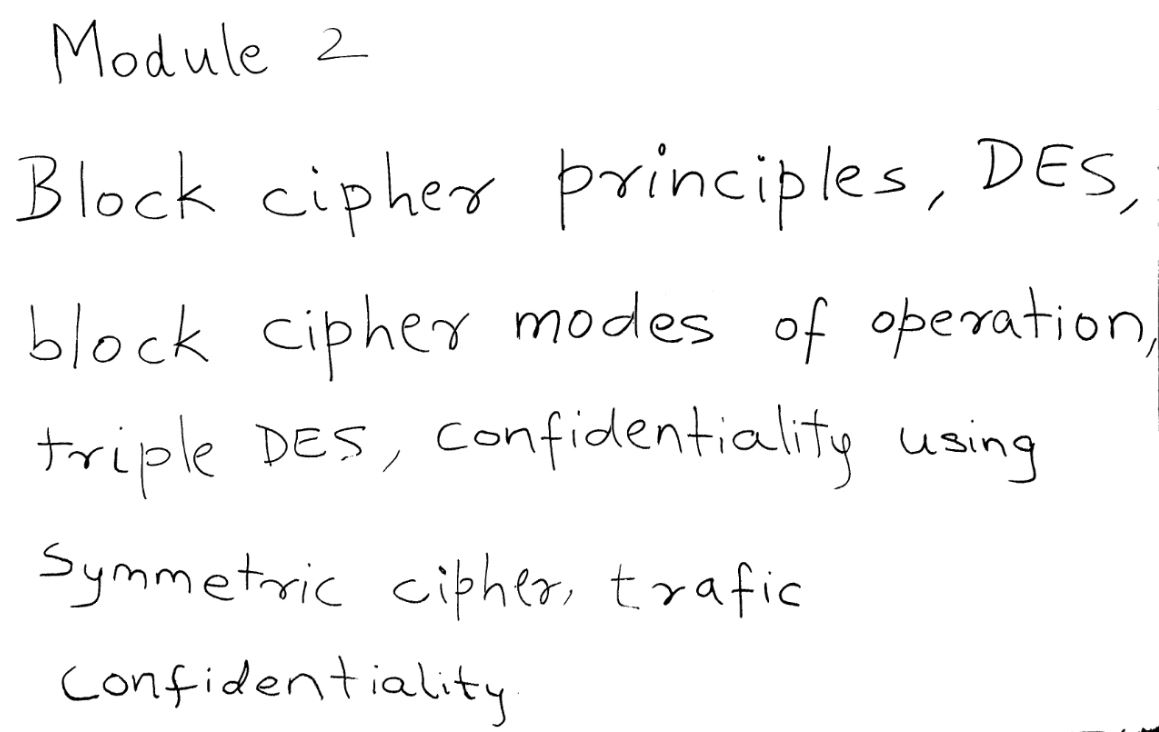 Module 2
Block cipher principles, DES,
block cipher modes of operation,
triple DES, confidentiality using
Symmetric cipher, trafic
confidentiality.